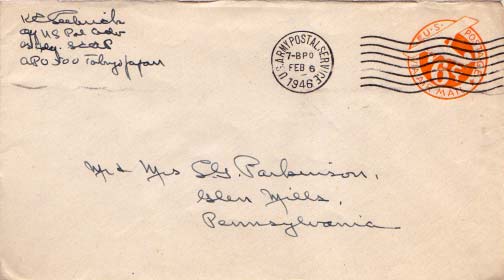 KE
of US Pol Adv
SCAP
APO 500 Tokyo Japan
U.S. ARMY POSTAL SERVICE
7-BPO
FEB 6
1946
U.S. POSTAGE
AIR MAIL
6¢
Mr & Mrs S.G. Parkinson,
Glen Mills,
Pennsylvania